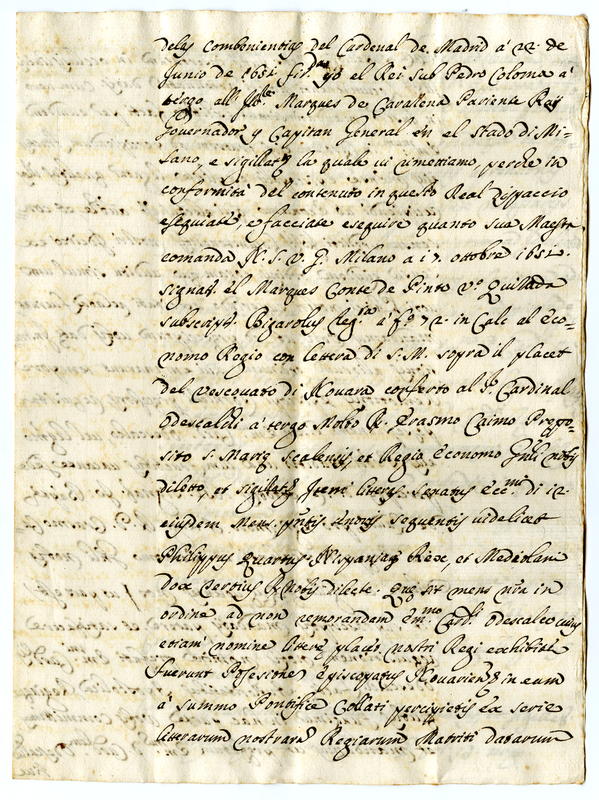 delas combenientias del Cardenal de Madrid á 22. de
Junio de 1651. fir.º yo el Rei sub Pedro Coloma á
tergo all' Ill. Marques de Caraçena Pariente Rey
Governador y Capitan General en el Stado di Mi-
lano, e sigillatȝ la quale vi rimettiamo, perche in
conformità del contenuto in questo Real Dispaccio
eseguiate, e facciate eseguire quanto sua Maestà
comanda N. S. v. G. Milano a 17. ottobre 1651.
signat. el Marques Conte de Pinto vº Quixada
subscript. Bigarolus Reg. á fº 72. in Calc. al Eco-
nomo Regio con lettera di S. M. sopra il placet
del vescovato di Novara conferto al S. Cardinal
Odescaldi á tergo Molto R. Erasmo Caimo Prepo-
sito S. Mariȩ Scalensis et Regio Economo Gnli nobis
diletto, et sigillatȝ Item litterȩ Senatus Ecc.mi di 12.
eiusdem Mens. pntis tenoris sequentis videlicet
Philippus Quartus Hispaniarȝ Rex, et Mediolani
Dox tertius R. Nobis dilecte. Quȩ sit mens nra in
ordine ad non remorandam Em.mo Card. Odescalco cuius
etiam nomine litterȩ placȝ nostri Regi exhibitȩ
fuerunt Possessionȩ Episcopatus Novariensȝ in eum
á summo Pontifice Collati percipietis ex serie
litterarum nostrarȝ Regiarum Matriti datarum